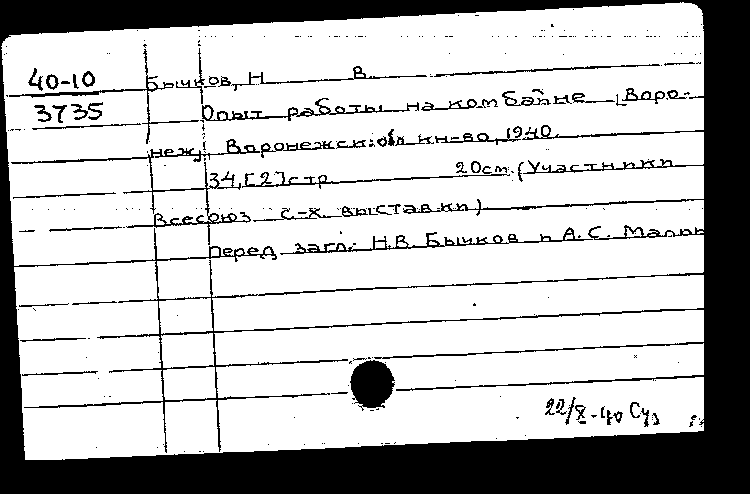 40-10
3735
Бычков, Н В.
Опыт работы на комбайне [Воро-
неж], Воронежск. обл кн-во, 1940.
34, [2] стр 20см. (Участники
Всесоюз. с-х. выставки)
Перед загл.: Н.В. Бычков и А.С. Малин
22/X-40